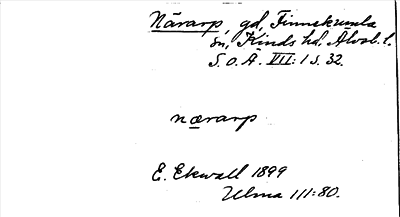 Närarp, gd, Finnekumla
sn, Kinds hd. Älvsb. l.
S.O.Ä. VII:1 s. 32.
nærarp
E. Ekwall 1899
Ulma 111:80.